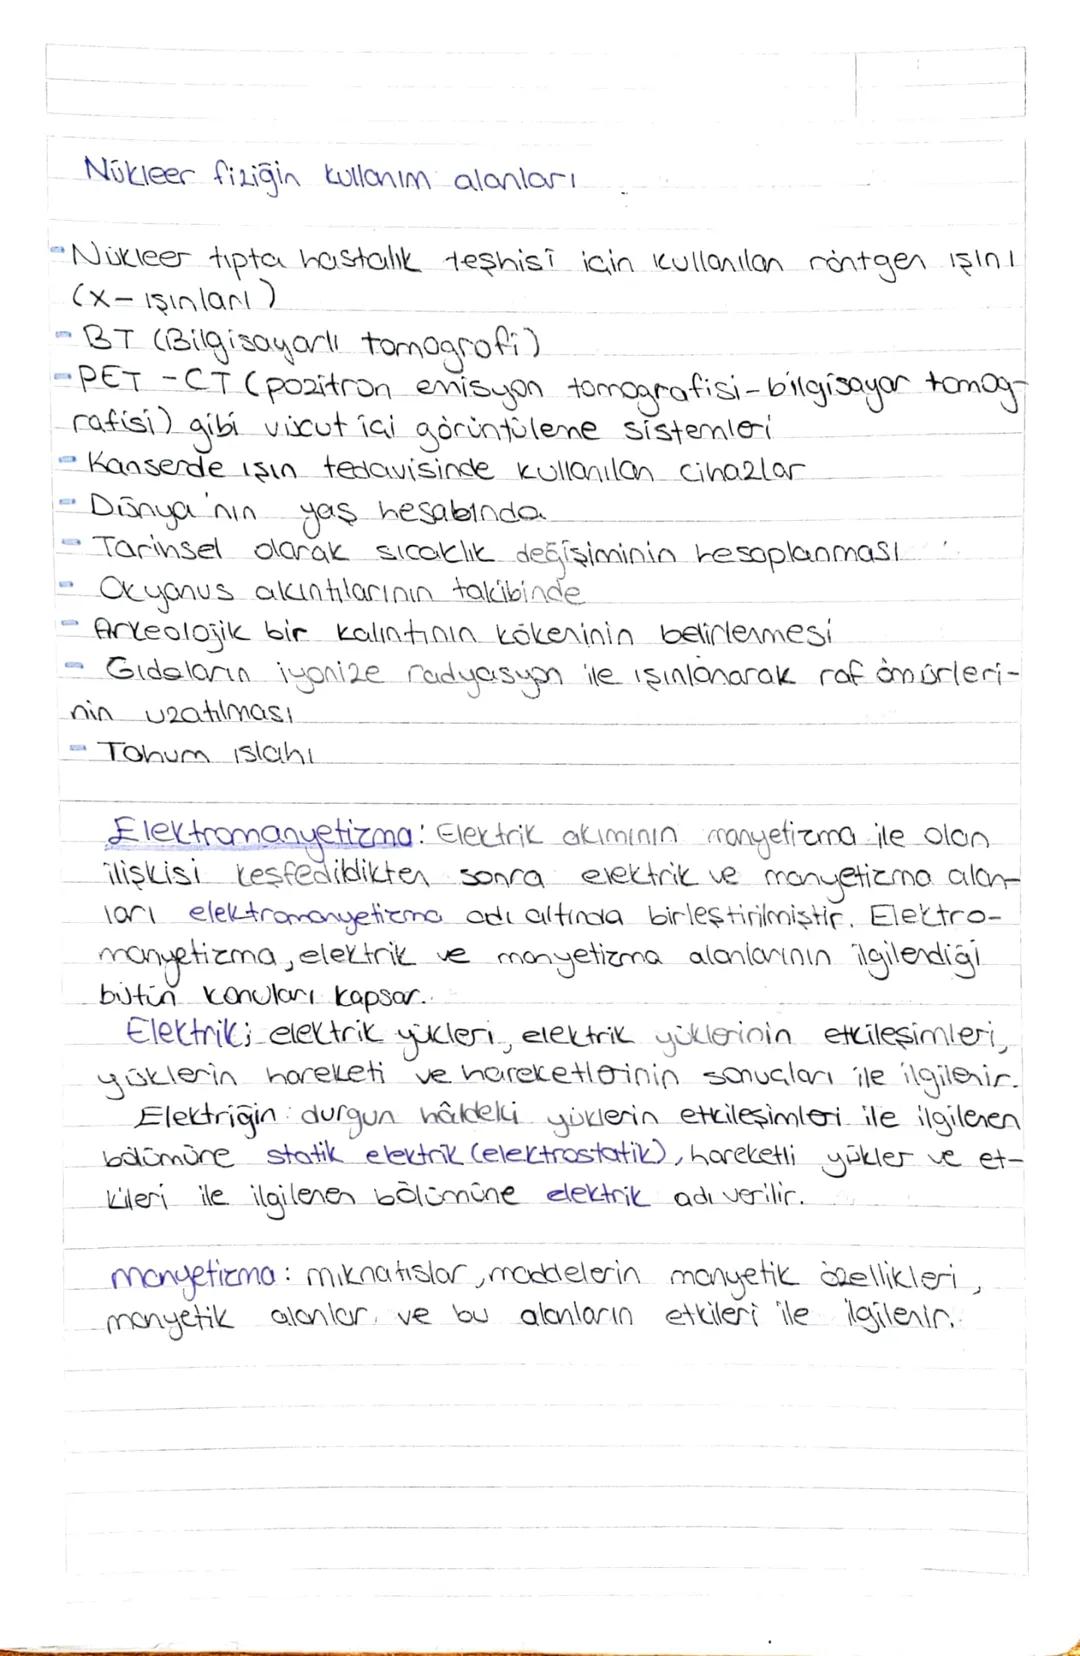 Nükleer fiziğin kullanım alanları
- Nükleer tıpta hastalık teşhisi için kullanılan röntgen ışını
(x- ışınları)
- BT (Bilgisayarlı tomografi)
- PET - CT (pozitron emisyon tomografisi-bilgisayar tomog-
rafisi) gibi vücut içi görüntüleme sistemleri
- Kanserde ışın tedavisinde kullanılan cihazlar
- Dünya'nın yaş hesabında
- Tarihsel olarak sıcaklık değişiminin hesaplanması
- Okyanus akıntılarının takibinde
- Arkeolojik bir kalıntının kökeninin belirlenmesi
- Gıdaların iyonize radyasyon ile ışınlanarak raf ömürleri-
nin uzatılması
- Tohum ıslahı
Elektromanyetizma: Elektrik akımının manyetizma ile olan
ilişkisi keşfedildikten sonra elektrik ve manyetizma alan-
ları elektromanyetizma adı altında birleştirilmiştir. Elektro-
manyetizma, elektrik ve manyetizma alanlarının ilgilendiği
bütün konuları kapsar.
Elektrik; elektrik yükleri, elektrik yüklerinin etkileşimleri,
yüklerin hareketi ve hareketlerinin sonuçları ile ilgilenir.
Elektriğin durgun hâldeki yüklerin etkileşimleri ile ilgilenen
bölümüne statik elektrik (elektrostatik), hareketli yükler ve et-
kileri ile ilgilenen bölümüne elektrik adı verilir.
manyetizma: mıknatıslar, maddelerin manyetik özellikleri,
manyetik alanlar ve bu alanların etkileri ile ilgilenir.